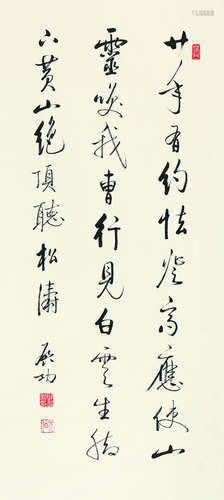 廿年有约怯登高應使山
靈笑我曹行見白雲生腳
下黄山絶頂聽松濤 啟功